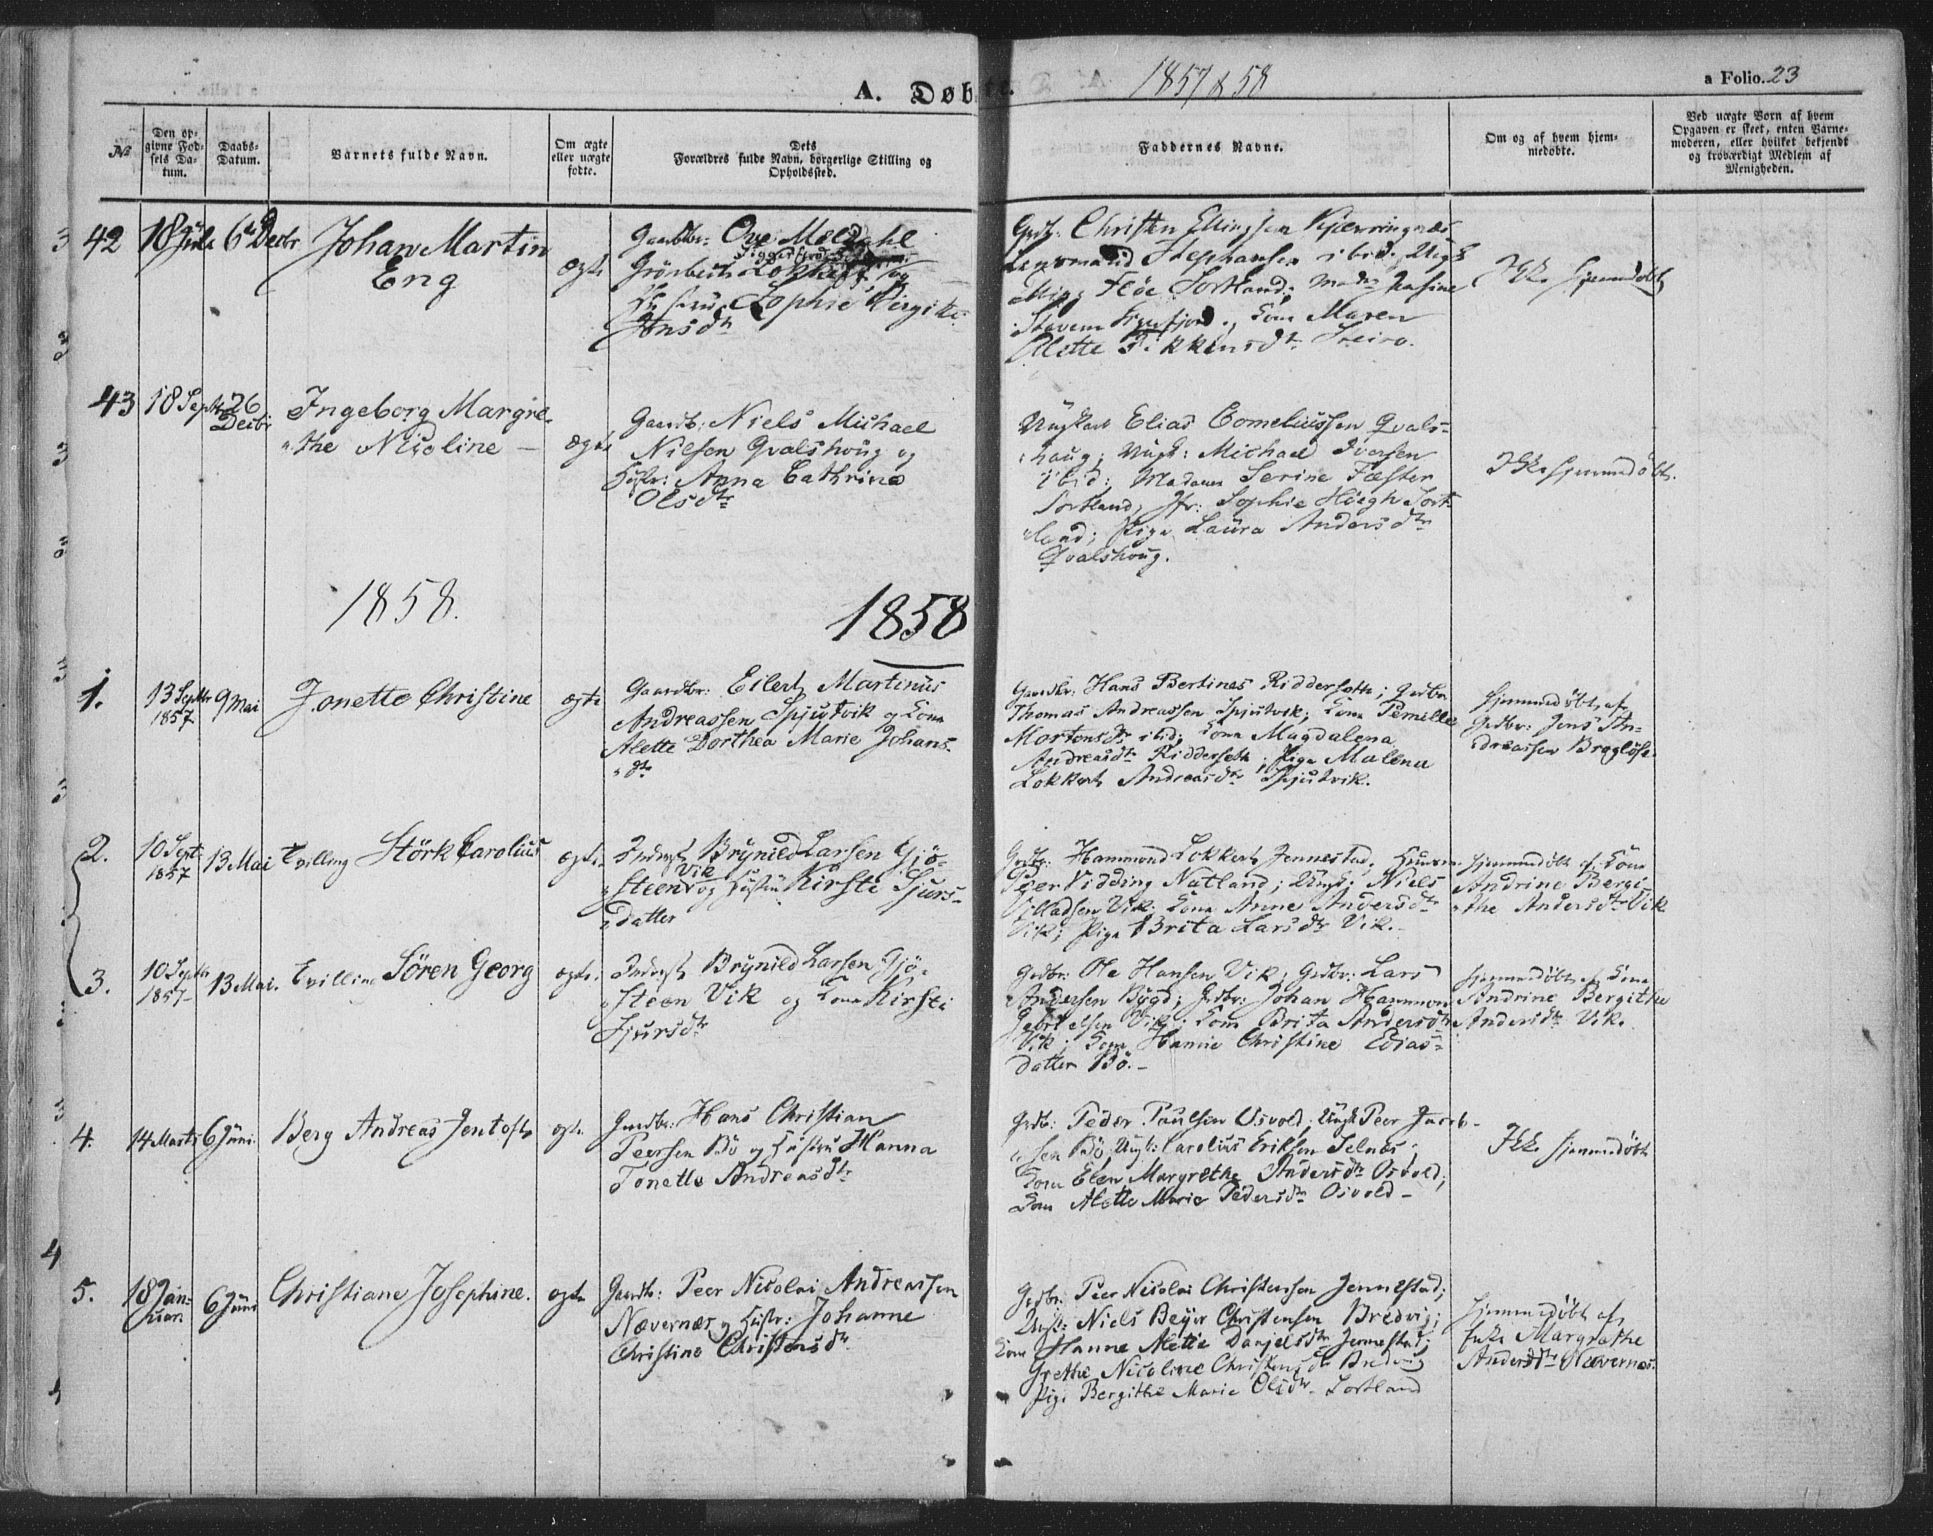 A. Døbte. 1857 & 58 a Folio. 23
No
Den op-
givne Fød-
sels Da-
tum.
Daabs-
Datum.
Barnets fulde Navn.
Om ægte
eller uægte
fødte.
Dets
Forældres fulde Navn, borgerlige Stilling og
Opholdssted.
Faddernes Navne.
Om og af hvem hjem-
medøbte.
Ved uægte Børn af hvem
Opgaven er skeet, enten Barne-
moderen, eller hvilket bekjendt
og troværdigt Medlem af
Menigheden.
42 18 6te Decbr
Johan Martin
Eng
ægte
Gaardbr: Ove Meldahl
Grönbech og
Sophie
Christen Ellingsen
Stephansen ibid; Ungk
Sortland;
Kone Maren
Alette
Ikke hjemmedöbt
43 18 Septbr 26
Decbr
Ingeborg Margre-
"the Nicoline -
ægte
Gaardb: Niels Michael
Nilsen Qvalshoug og
Hustr: Anna Cathrina
Olsdtr
Ungkarl Elias Corneliussen Qvals-
"haug; Ungk: Michael Iversen
ibid; Madame Serine Fæster
Sortland; Jfr: Sophie Höegh Sort-
"land; Pige Laura Andersdtr
Qvalshoug.
Ikke hjemmedöbt.
1858. 1858
1. 13 Septbr
1857
9 Mai
Jonette Christine
ægte
Gaardbr: Eilert Martinus
Andreassen Spjutvik og Kone
Alette Dorthea Marie Johans-
"dtr
Gaardbr: Hans Bertines Riddersette; Grdbr
Thomas Andreassen Spjutvik; Kone Pernille
Mortensdtr ibid; Kone Magdalena
Andreasdtr Riddersette; Pige Malena
Lokkert Andreasdtr Spjutvik.
Hjemmedöbt af
Grdbr: Jens An-
"dreassen
2. 10 Sept
1857
13 Mai
Tvilling Störk Carolius
ægte.
Inderst Brynild Larsen Gjö-
"steen Vik og Hustru Kirsti Sjurs-
"datter
Grdbr: Hammond Lokkert Jennestad;
Peer Vidding Natland; Ungk: Niels
Vik; Kone Anne Andersdtr
Vik; Pige Brita Larsdtr Vik.
Hjemmedöbt af Kone
Andrine Bergi-
"the Andersdtr Vik
3. 10 Septbr
1857
13 Mai.
Tvilling Sören Georg
ægte.
Inderst Brynild Larsen Gjö-
"steen Vik og Kone Kirsti
Sjursdtr
Gedbr: Ole Hansen Vik; Gedbr: Lars
Andersen Bygd; Grdbr: Johan Hammon
Vik; Kone Brita Andersdtr
Vik; Kone Hanna Christine Elias-
datter Bö.-
Hjemmedöbt af Kone
Andrine Bergithe
Andersdtr Vik.
4. 14 Marts 6 Juni.
Berg Andreas Jentoft
ægte.
Gaardbr: Hans Christian
Peersen Bö og Hustru Hanna
Tonette Andreasdtr
Grdb: Peder Paulsen Osvold; Ungk Peer Jacob-
"sen Bö; Ungk: Carolius Eriksen Selnæs;
Kone Elen Margrethe Andersdtr Osvold;
Kone Alette Marie Pedersdtr Osvold -
Ikke hjemmedöbt
5. 18 Jan-
"uar.
6 Juni
Christiane Josephine.
ægte
Gaardb: Peer Nicolai Andreassen
Nævernæs og Hustr: Johanne
Christine Christensdtr
Grdbr: Peer Nicolai Christenssen Jennestad;
Ungk: Niels Beyer Christensen Bredvig;
Kone Hanne Mette Danjelsdtr Jennestad;
Grethe Nicoline Christensdtr Bredvig
Pige Bergithe Marie Olsdtr Sortland
Hjemmedöbt af
Enke Margrethe
Andersdtr Nævernæs.